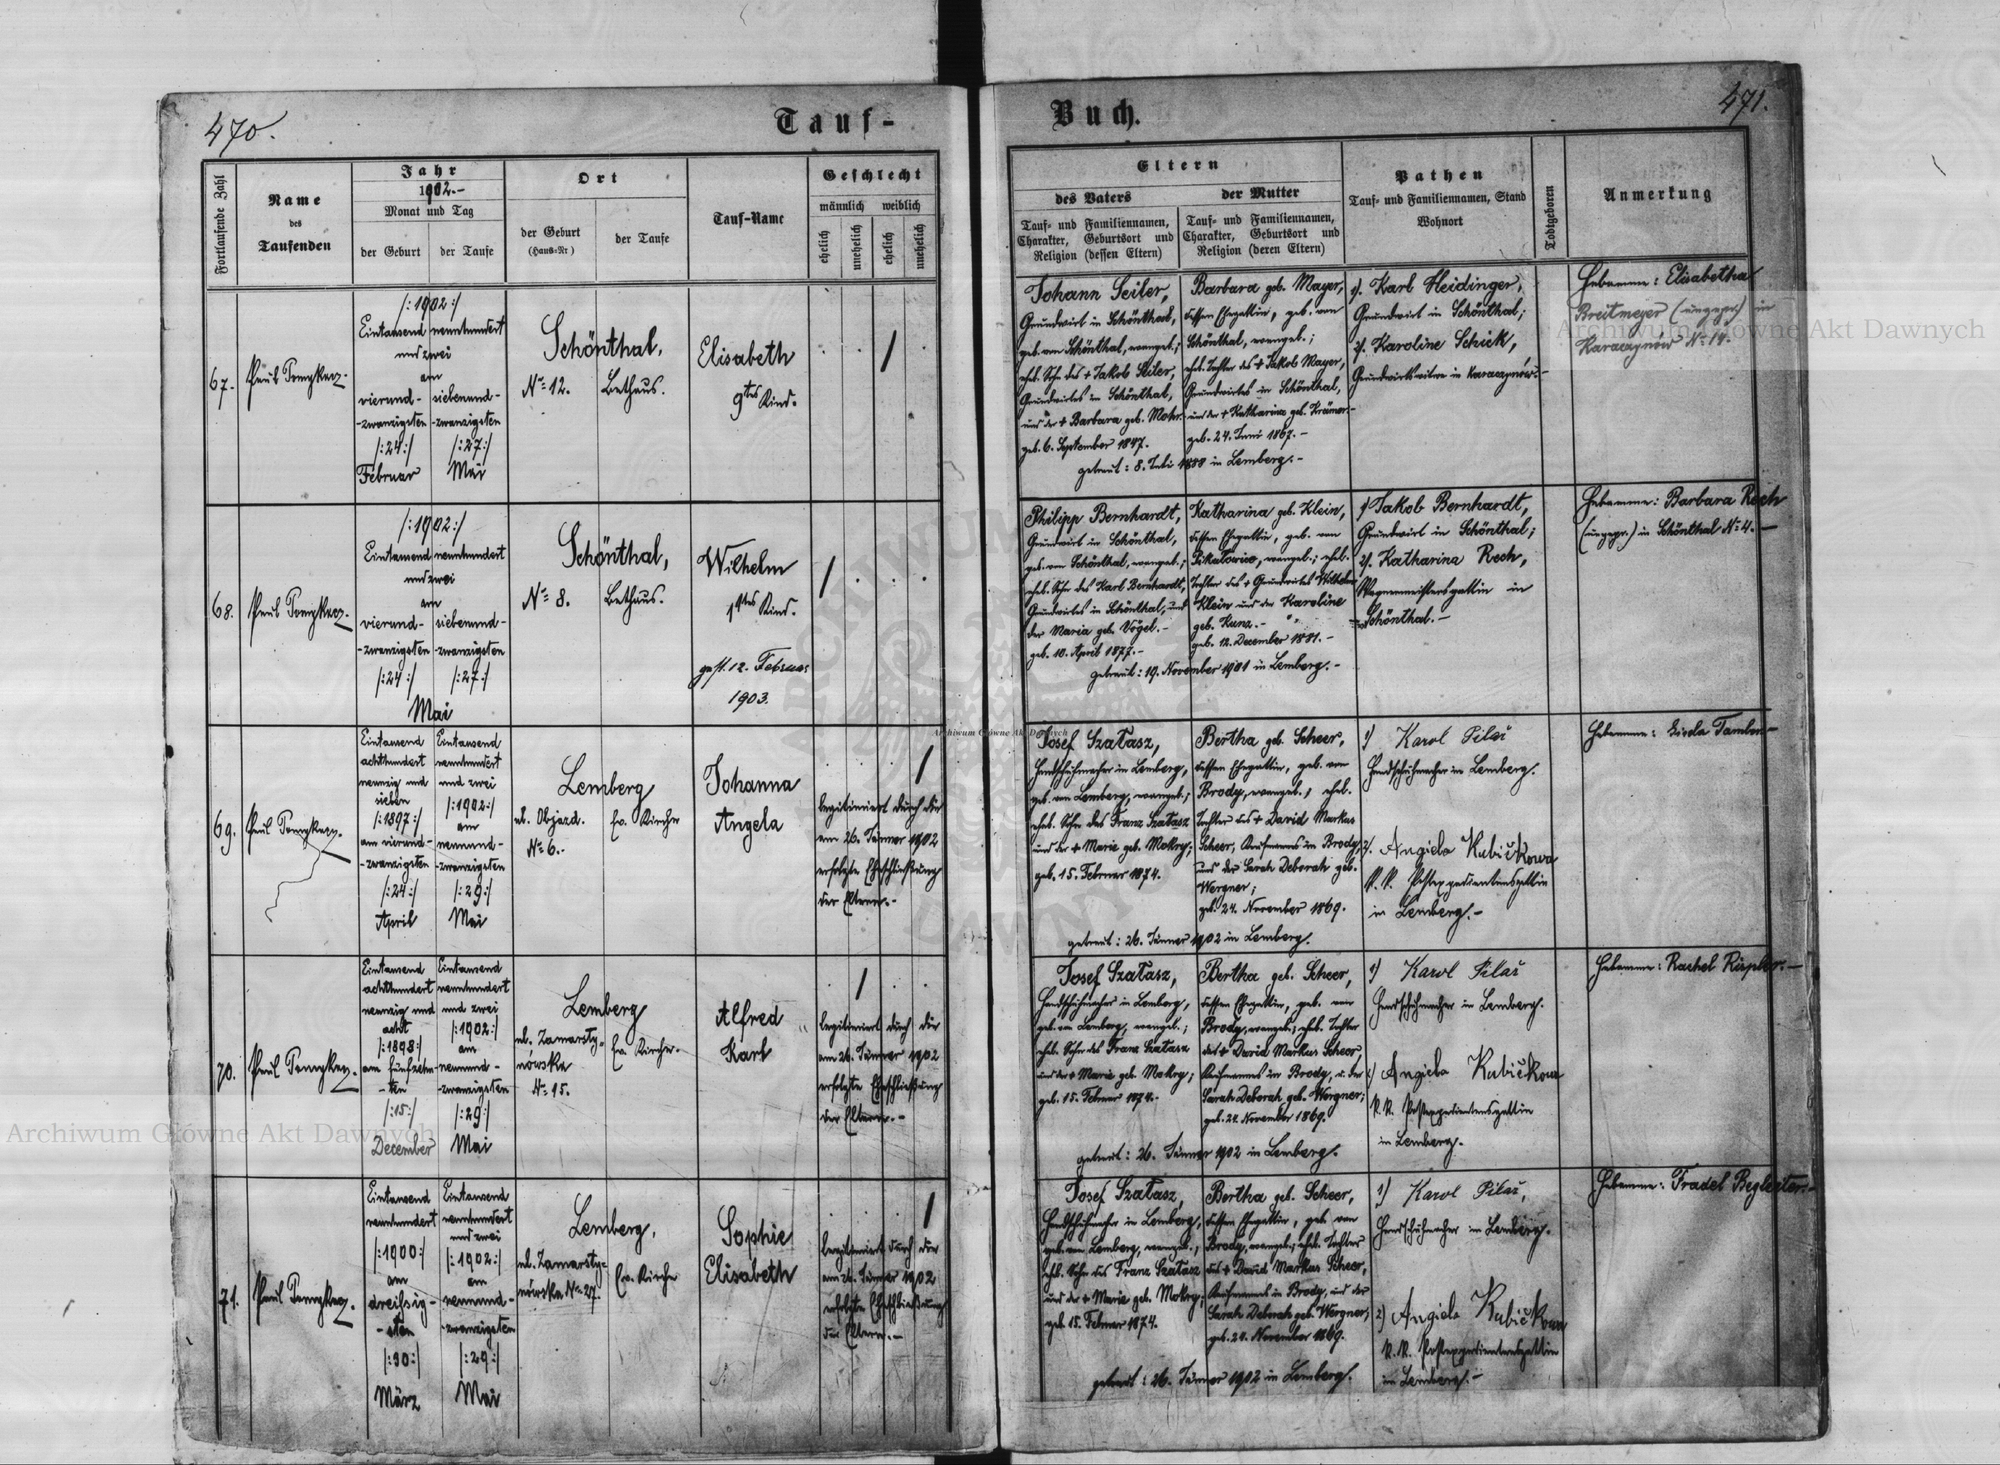 470.
Tauf-
Fortlaufende Zahl
Name
des
Taufenden
Jahr
1902.-
Monat und Tag
der Geburt
der Taufe
Ort
der Geburt
(Haus-Nr)
der Taufe
Tauf-Name
Geschlecht
männlich weiblich
ehelich
unehelich
ehelich
unehelich
67.
/:1902:/
Eintausend neunhundert
und zwei
am
vierund-
-zwanzigsten
/:24:/
Februar
siebenund-
-zwanzigsten
/:27:/
Mai
Schönthal,
Nº 12.
Bethaus.
Elisabeth
9tes Kind.
68.
/:1902:/
Eintausend neunhundert
und zwei
am
vierund-
-zwanzigsten
/:24:/
siebenund-
-zwanzigsten
/:27:/
Mai
Schönthal,
Nº 8.
Bethaus.
Wilhelm
1tes Kind.
gest. 12. Februar
1903.
69.
Eintausend
achthundert
neunzig und
sieben
/:1897:/
am vierund-
-zwanzigsten
/:24:/
April
Eintausend
neunhundert
und zwei
/:1902:/
am
neunund-
-zwanzigsten
/:29:/
Mai
Lemberg
Nº 6.-
Ev. Kirche
Johanna
Angela
legitimiert durch die
am 26. Jänner 1902
erfolgte Eheschließung
der Eltern.-
70.
Eintausend
achthundert
neunzig und
acht
/:1898:/
am fünfzehn-
-ten
/:15:/
December
Eintausend
neunhundert
und zwei
/:1902:/
am
neunund-
-zwanzigsten
/:29:/
Mai
Lemberg
ul. Zamarsty-
nówska
Nº 15.
Ev. Kirche.
Alfred
Karl
legitimiert durch die
am 26. Jänner 1902
erfolgte Eheschließung
der Eltern.-
71.
Eintausend
neunhundert
/:1900:/
am
dreißig-
-sten
/:30:/
März
Eintausend
neunhundert
und zwei
/:1902:/
am
neunund-
-zwanzigsten
/:29:/
Mai
Lemberg.
ul. Zamarsty-
nówska Nº 27.
Ev. Kirche
Sophie
Elisabeth
legitimiert durch die
am 26. Jänner 1902
erfolgte Eheschließung
der Eltern.-
Buch.
471.
Eltern
des Vaters
der Mutter
Tauf- und Familiennamen,
Charakter, Geburtsort und
Religion (dessen Eltern)
Tauf- und Familiennamen,
Charakter, Geburtsort und
Religion (deren Eltern)
Pathen
Tauf- und Familiennamen, Stand
Wohnort
Todtgeboren
Anmerkung
Johann Seiler,
Grundwirt in Schönthal,
geb. von Schönthal, evangel.;
ehel. Sohn des + Jakob Seiler,
Grundwirtes in Schönthal,
und der + Barbara geb. Mohr.-
geb. 6. September 1847.
Barbara geb. Mayer,
dessen Ehegattin, geb. von
Schönthal, evangel.;
ehel. Tochter des + Jakob Mayer,
Grundwirtes in Schönthal,
und der + Katharina geb. Krämer.-
geb. 24. Juni 1867.-
getraut: 8. Juli 1888 in Lemberg.-
1). Karl Heidinger,
Grundwirt in Schönthal;
2). Karoline Schick,
Grundwirtswitwe in Karaczynów.-
Hebamme: Elisabetha
Breitmeyer (ungepr.) in
Karaczynów Nº 19.
Philipp Bernhardt,
Grundwirt in Schönthal,
geb. von Schönthal, evangel.;
ehel. Sohn des Karl Bernhardt,
Grundwirtes in Schönthal, und
der Maria geb. Vögel.-
geb. 10. April 1877.-
Katharina geb. Klein,
dessen Ehegattin, geb. von
evangel.; ehel.
Tochter des + Grundwirtes Wilhelm
Klein und der Karoline
geb. Kunz.-
geb. 12. December 1881.-
getraut: 19. November 1901 in Lemberg.-
1) Jakob Bernhardt,
Grundwirt in Schönthal;
2). Katharina Rech,
Wagnermeistersgattin in
Schönthal.-
Hebamme: Barbara Rech
(ungepr.) in Schönthal Nº 4.-
Josef Szatasz,
Handschuhmacher in Lemberg,
geb. von Lemberg, evangel.;
ehel. Sohn des Franz Szatasz
und der + Marie geb. Mokry;
geb. 15. Februar 1874.
Bertha geb. Scheer,
dessen Ehegattin, geb. von
Brody, evangel.; ehel.
Tochter des + David Markus
Scheer, Kaufmannes in Brody,
und der Sarah Deborah geb.
Wergner;
geb. 24. November 1869.
getraut: 26. Jänner 1902 in Lemberg.
1) Karol Pilař
Handschuhmacher in Lemberg.
2). Angiela Kubičkowa
k.k. Postexpedientensgattin
in Lemberg.-
Hebamme:
Josef Szatasz,
Handschuhmacher in Lemberg,
geb. von Lemberg, evangel.;
ehel. Sohn des Franz Szatasz
und der + Marie geb. Mokry;
geb. 15. Februar 1874.-
Bertha geb. Scheer,
dessen Ehegattin, geb. von
Brody, evangel.; ehel. Tochter
des + David Markus Scheer,
Kaufmannes in Brody, u. der
Sarah Deborah geb. Wergner;
geb. 24. November 1869.
getraut: 26. Jänner 1902 in Lemberg.
1) Karol Pilař
Handschuhmacher in Lemberg.
2) Angiela Kubičkowa
k.k. Postexpedientensgattin
in Lemberg.
Hebamme: Rachel
Josef Szatasz,
Handschuhmacher in Lemberg,
geb. von Lemberg, evangel.,
ehel. Sohn des Franz Szatasz
und der + Marie geb. Mokry;
geb. 15. Februar 1874.
Bertha geb. Scheer,
dessen Ehegattin, geb. von
Brody, evangel.; ehel. Tochter
des + David Markus Scheer,
Kaufmannes in Brody, und der
Sarah Deborah geb. Wergner,
geb. 24. November 1869.
getraut: 26. Jänner 1902 in Lemberg.
1) Karol Pilař,
Handschuhmacher in Lemberg.
2) Angiela Kubičkowa
k.k. Postexpedientensgattin
in Lemberg.-
Hebamme: Fradel Begleiter.-
Archiwum Główne Akt Dawnych
Archiwum Główne Akt Dawnych
Archiwum Główne Akt Dawnych